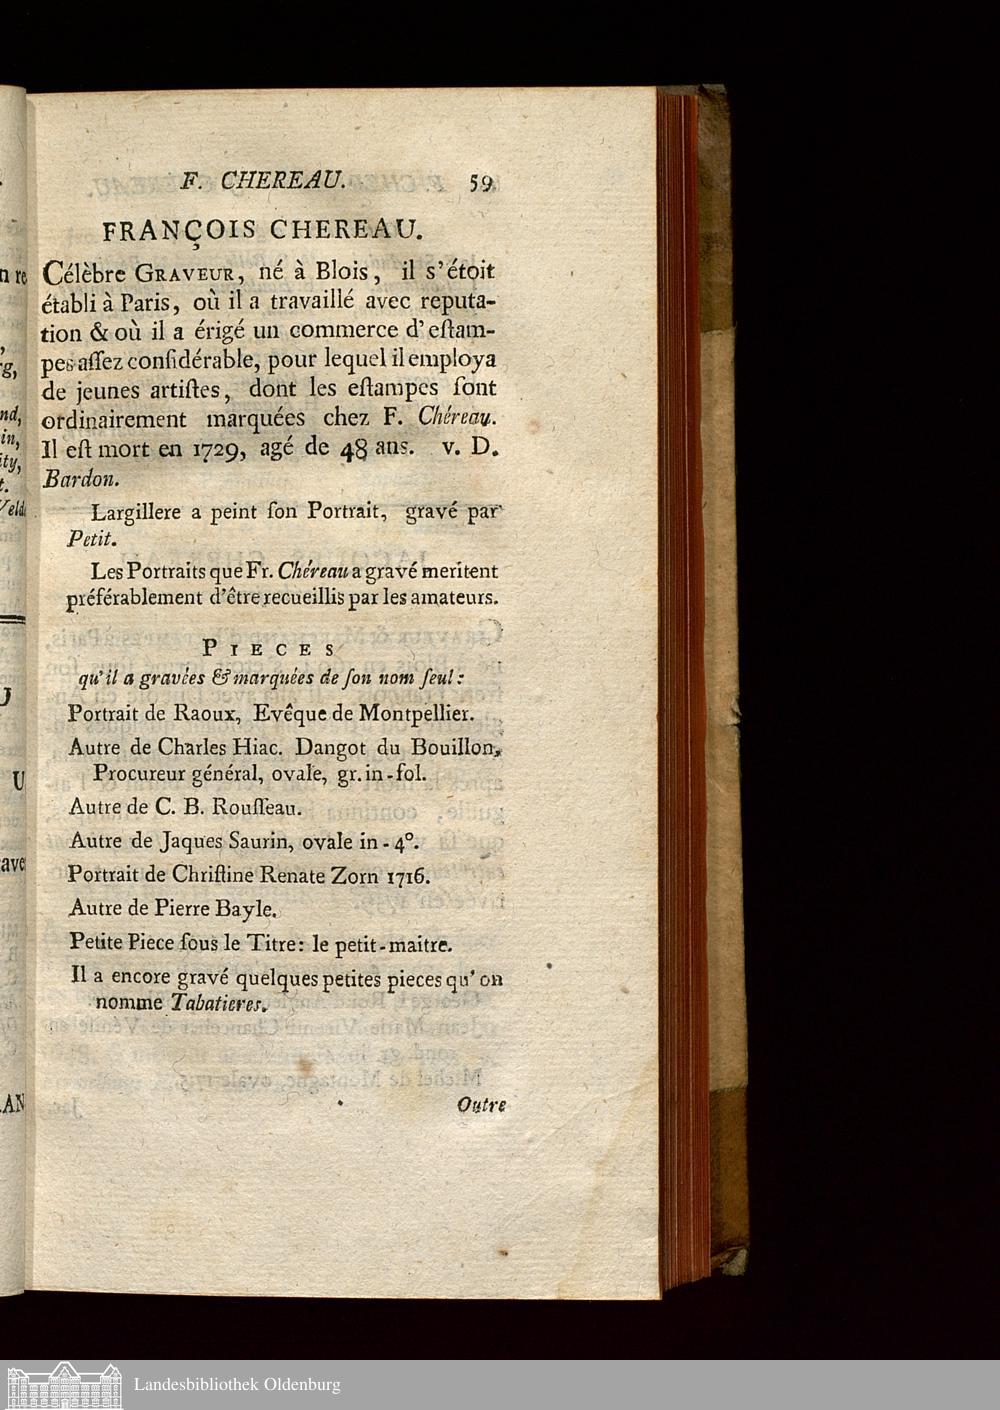 F. CHEREAU. 59
FRANÇOIS CHEREAU.
Célèbre GRAVEUR, né à Blois, il s'étoit
établi à Paris, où il a travaillé avec reputa-
tion & où il a érigé un commerce d'eſtam-
pes aſſez conſidérable, pour lequel il employa
de jeunes artiſtes, dont les eſtampes ſont
ordinairement marquées chez F. Chéreau.
Il eſt mort en 1729, agé de 48 ans. v. D.
Bardon.
Largillere a peint ſon Portrait, gravé par
Petit.
Les Portraits que Fr. Chéreau a gravé meritent
préférablement d'être recueillis par les amateurs.
PIECES
qu'il a gravées & marquées de ſon nom ſeul:
Portrait de Raoux, Evêque de Montpellier.
Autre de Charles Hiac. Dangot du Bouillon,
Procureur général, ovale, gr. in-fol.
Autre de C. B. Rouſſeau.
Autre de Jaques Saurin, ovale in-4°.
Portrait de Chriſtine Renate Zorn 1716.
Autre de Pierre Bayle.
Petite Piece ſous le Titre: le petit-maitre.
Il a encore gravé quelques petites pieces qu'on
nomme Tabatieres.
Outre
Landesbibliothek Oldenburg